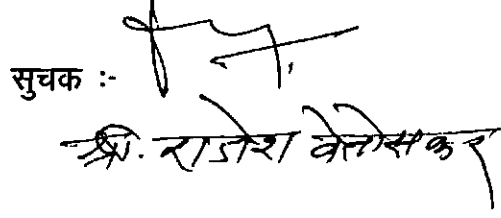 सुचक :-
श्री. राजेश वेतोसकर